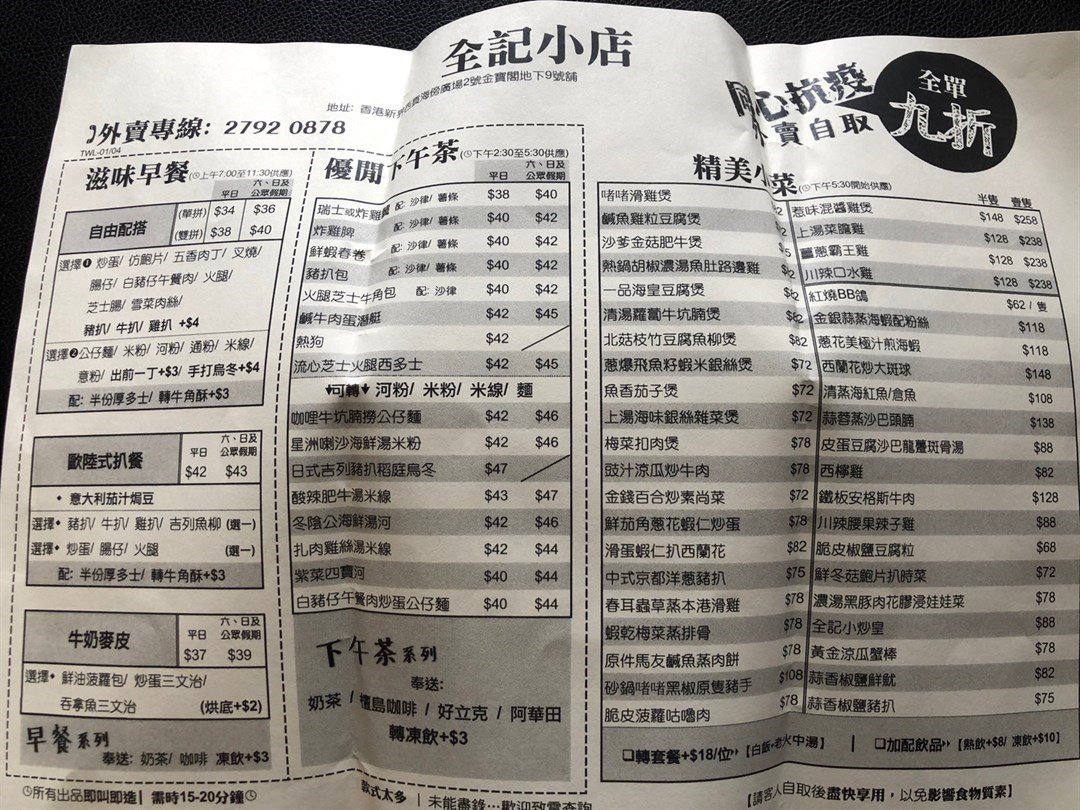 全記小店
地址: 香港新界西貢海傍廣場2號金寶閣地下9號舖
外賣專線: 2792 0878
TWL-01/04
同心抗疫
外賣自取
全單
九折
滋味早餐 (上午7:00至11:30供應)
平日 六、日及公眾假期
自由配搭 (單拼) $34 $36
(雙拼) $38 $40
選擇❶ 炒蛋/ 仿鮑片/ 五香肉丁/ 叉燒/
腸仔/ 白豬仔午餐肉/ 火腿/
芝士腸/ 雪菜肉絲/
豬扒/ 牛扒/ 雞扒 +$4
選擇❷ 公仔麵/ 米粉/ 河粉/ 通粉/ 米線/
意粉/ 出前一丁+$3/ 手打烏冬+$4
配: 半份厚多士/ 轉牛角酥+$3
歐陸式扒餐 平日 $42 六、日及公眾假期 $43
• 意大利茄汁焗豆
選擇• 豬扒/ 牛扒/ 雞扒/ 吉列魚柳 (選一)
選擇• 炒蛋/ 腸仔/ 火腿 (選一)
配: 半份厚多士/ 轉牛角酥+$3
牛奶麥皮 平日 $37 六、日及公眾假期 $39
選擇• 鮮油菠蘿包/ 炒蛋三文治/
吞拿魚三文治 (烘底+$2)
早餐系列
奉送: 奶茶/ 咖啡 凍飲+$3
所有出品即叫即造| 需時15-20分鐘
優閒下午茶 (下午2:30至5:30供應)
平日 六、日及公眾假期
瑞士或炸雞 配: 沙律/ 薯條 $38 $40
炸雞脾 配: 沙律/ 薯條 $40 $42
鮮蝦春卷 配: 沙律/ 薯條 $40 $42
豬扒包 配: 沙律/ 薯條 $40 $42
火腿芝士牛角包 配: 沙律 $40 $42
鹹牛肉蛋潛艇 $42 $45
熱狗 $42
流心芝士火腿西多士 $42 $45
可轉 河粉/ 米粉/ 米線/ 麵
咖哩牛坑腩撈公仔麵 $42 $46
星洲喇沙海鮮湯米粉 $42 $46
日式吉列豬扒稻庭烏冬 $47
酸辣肥牛湯米線 $43 $47
冬陰公海鮮湯河 $42 $46
扎肉雞絲湯米線 $42 $44
紫菜四寶河 $40 $44
白豬仔午餐肉炒蛋公仔麵 $40 $44
下午茶系列
奉送:
奶茶 / 檀島咖啡 / 好立克 / 阿華田
轉凍飲+$3
款式太多 | 未能盡錄…歡迎致電查詢
精美小菜 (下午5:30開始供應)
啫啫滑雞煲
鹹魚雞粒豆腐煲
沙爹金菇肥牛煲
熱鍋胡椒濃湯魚肚路邊雞
一品海皇豆腐煲
清湯蘿蔔牛坑腩煲
北菇枝竹豆腐魚柳煲 $82
蔥爆飛魚籽蝦米銀絲煲 $72
魚香茄子煲 $72
上湯海味銀絲雜菜煲 $72
梅菜扣肉煲 $78
豉汁涼瓜炒牛肉 $78
金錢百合炒素尚菜 $72
鮮茄角蔥花蝦仁炒蛋 $78
滑蛋蝦仁扒西蘭花 $82
中式京都洋蔥豬扒 $75
春耳蟲草蒸本港滑雞 $78
蝦乾梅菜蒸排骨 $78
原件馬友鹹魚蒸肉餅 $78
砂鍋啫啫黑椒原隻豬手 $108
脆皮菠蘿咕嚕肉 $78
半隻 壹隻
惹味混醬雞煲 $148 $258
上湯菜膽雞 $128 $238
薑蔥霸王雞 $128 $238
川辣口水雞 $128 $238
紅燒BB鴿 $62 / 隻
金銀蒜蒸海蝦配粉絲 $118
蔥花美極汁煎海蝦 $118
西蘭花炒大斑球 $148
清蒸海紅魚/倉魚 $108
蒜蓉蒸沙巴頭腩 $138
皮蛋豆腐沙巴龍躉斑骨湯 $88
西檸雞 $82
鐵板安格斯牛肉 $128
川辣腰果辣子雞 $88
脆皮椒鹽豆腐粒 $68
鮮冬菇鮑片扒時菜 $72
濃湯黑豚肉花膠浸娃娃菜 $78
全記小炒皇 $88
黃金涼瓜蟹棒 $78
蒜香椒鹽鮮魷 $82
蒜香椒鹽豬扒 $75
❏轉套餐+$18/位 【白飯+老火中湯】 | ❏加配飲品 【熱飲+$8/ 凍飲+$10】
【請客人自取後盡快享用，以免影響食物質素】